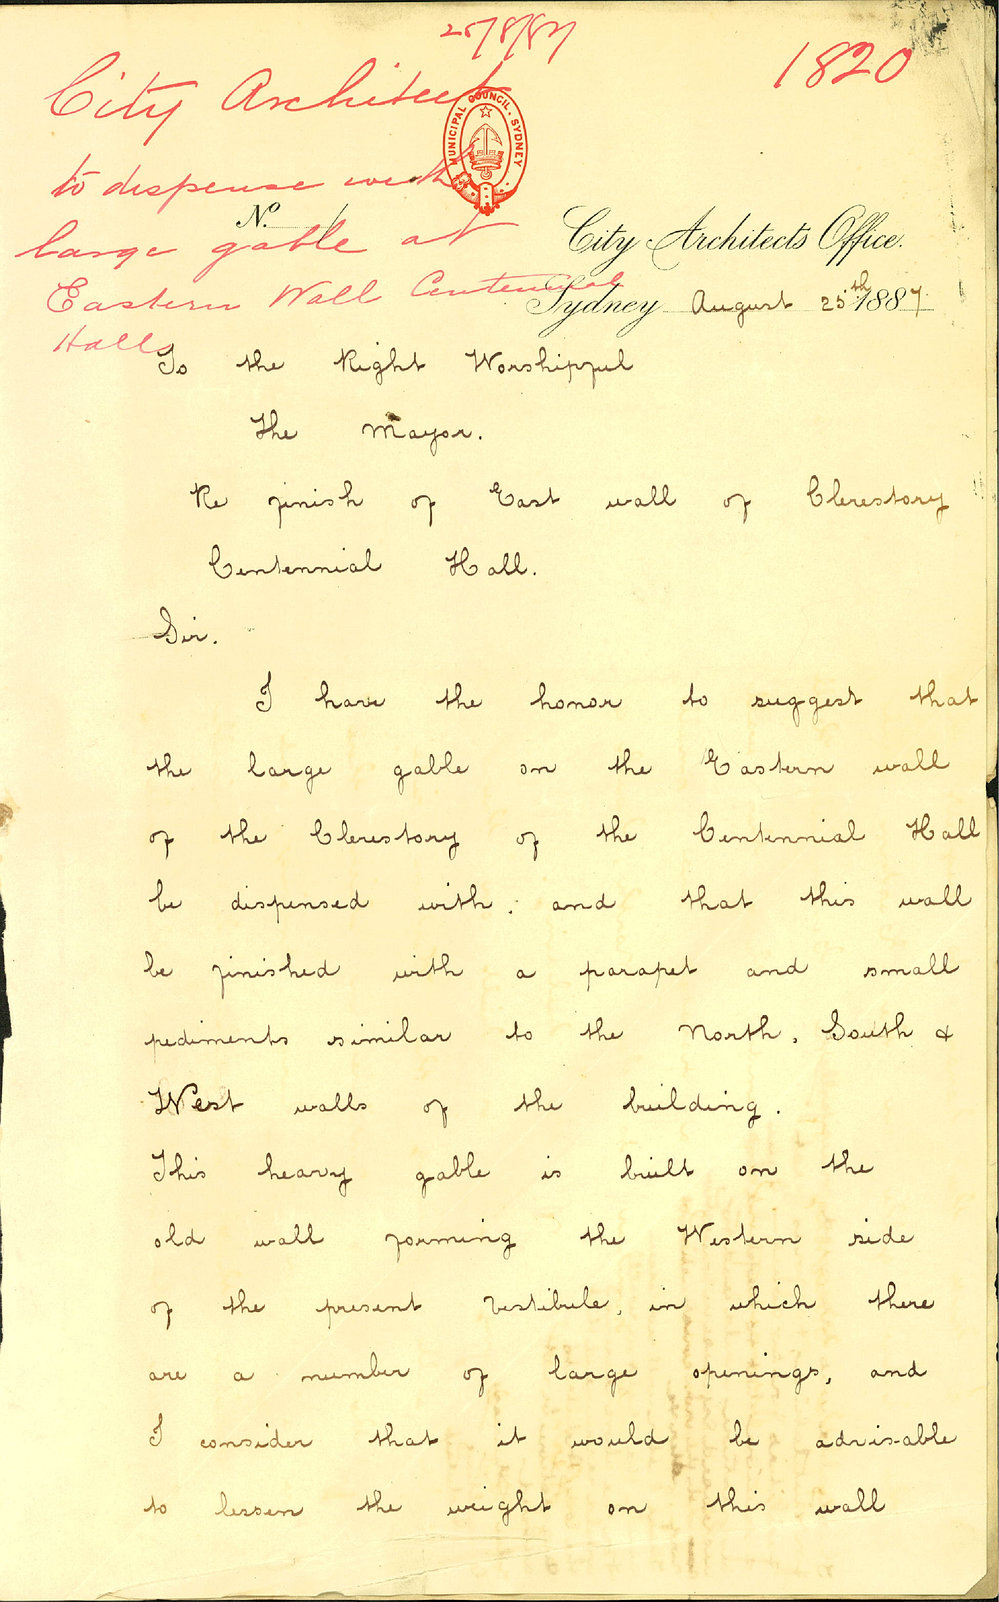 25/8/87
1820
City Architect
to dispense with
large gable at
Eastern Wall Centennial
Halls
MUNICIPAL COUNCIL. SYDNEY
No.
City Architects Office.
Sydney August 25th 1887
To the Right Worshipful
The Mayor.
Re finish of East wall of Clerestory
Centennial Hall.
Sir.
I have the honor to suggest that
the large gable on the Eastern wall
of the Clerestory of the Centennial Hall
be dispensed with, and that this wall
be finished with a parapet and small
pediments similar to the North, South &
West walls of the building.
This heavy gable is built on the
old wall forming the Western side
of the present vestibule, in which there
are a number of large openings, and
I consider that it would be advisable
to lessen the weight on this wall